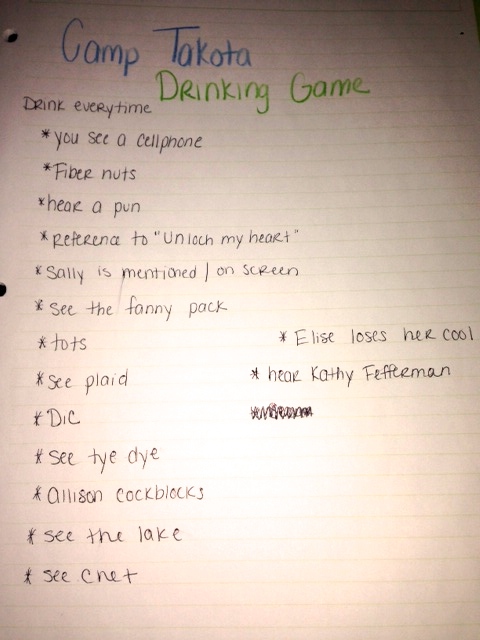 Camp Takota
Drinking Game
Drink everytime
* you see a cellphone
* Fiber nuts
* hear a pun
* reference to "Unloch my heart"
* Sally is mentioned / on screen
* see the fanny pack
* tots
* Elise loses her cool
* see plaid
* hear Kathy Fefferman
* DiC
* see tye dye
* allison cockblocks
* see the lake
* see chet